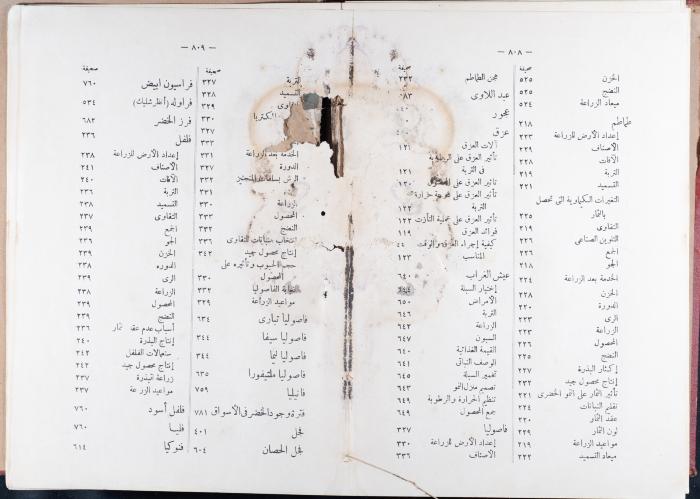 — ٨٠٨ —
صحيفة
الخزن ٥٢٥
النضج ٥٢٥
ميعاد الزراعة ٥٢٤
طماطم ٢١٨
إعداد الأرض للزراعة ٢٢٣
الأصناف ٢٢٩
الآفات ٢٢٨
التربة ٢١٩
التسميد ٢٢١
التغيرات الكيماوية التى تحصل
بالثمار ٢٢٥
التقاوى ٢١٩
التلوين الصناعى ٢٢٦
الجمع ٢٢٦
الجو ٢١٨
الخدمة بعد الزراعة ٢٢٤
الخزن ٢٢٨
الدورة ٢٢٠
الرى ٢٢٣
الزراعة ٢٢٣
المحصول ٢٢٦
النضج ٢٢٥
إكثار البذرة ٢٢٧
إنتاج محصول جيد ٢٣٢
تأثير الثمار على النمو الخضرى ٢٢١
تقليم النباتات ٢٢٤
عقد الثمار ٢٢٠
لون الثمار ٢٢٩
مواعيد الزراعة ٢١٩
ميعاد التسميد ٢٢٢
صحيفة
عجن الطماطم ٢٣٢
عبد اللاوى
عجور
عزق
آلات العزق ١٢١
تأثير العزق على الرطوبة
فى التربة ١٢١
تأثير العزق على
تأثير العزق على درجة حرارة
التربة ١٢٢
تأثير العزق على عملية التأزت ١٢٢
فوائد العزق ١١٩
كيفية إجراء العزق والوقت
المناسب ١٢٣
عيش الغراب ٦٤٠
إختيار السبلة
الأمراض ٦٥٠
التربة ٦٤٦
الزراعة ٦٤٢
السبون ٦٤٧
القيمة الغذائية ٦٤٠
الوصف النباتى ٦٤١
تخمير السبلة ٦٤٥
تصمير منزل النمو ٦٤٣
تنظيم الحرارة والرطوبة ٦٤٩
جمع المحصول ٦٤٩
فاصوليا ٣٢٧
إعداد الأرض للزراعة ٣٣٠
الأصناف ٣٣٦
— ٨٠٩ —
صحيفة
التربة ٣٢٧
التسميد ٣٢٨
٣٢٩
٣٣٠
٣٢٧
٣٣٢
الخدمة بعد الزراعة ٣٣١
الدورة ٣٢٧
الرش بسلفات المنجنيز ٣٣١
الزراعة ٣٣٠
المحصول ٣٣٣
النضج ٣٣٢
انتخاب نباتات للتقاوى ٣٣٦
إنتاج محصول جيد ٣٤٢
حجم الحبوب وتأثيره على
المحصول ٣٣٠
الفاصوليا
مواعيد الزراعة ٣٢٩
فاصوليا تبارى ٦٣٤
فاصوليا سيفا ٣٤٤
فاصوليا ليما ٣٤٤
فاصوليا ملتيفورا ٦٣٥
فانيليا ٧٥٩
فترة وجود الخضر فى الأسواق ٧٨١
فجل ٤٠١
فجل الحصان ٦٠٤
صحيفة
فراسيون أبيض ٧٦٠
فراوله (أنظر شليك) ٥٣٤
فرز الخضر ٦٨٢
فلفل ٢٣٦
إعداد الأرض للزراعة ٢٣٨
الأصناف ٢٤١
الآفات ٢٤٠
التربة ٢٣٦
التسميد ٢٣٨
التقاوى ٢٣٧
الجمع ٢٣٩
الجو ٢٣٦
الخزن ٢٣٩
الدوره ٢٣٨
الرى ٢٣٩
الزراعة ٢٣٨
المحصول ٢٣٩
النضج ٢٣٩
أسباب عدم عقد ثمار ٢٣٦
إنتاج البذرة ٢٤٢
إستعمالات الفلفل ٢٤٢
إنتاج محصول جيد ٢٤٢
زراعة البذرة ٢٣٧
مواعيد الزراعة ٢٣٧
فلفل أسود ٧٦٠
فليبا ٧٦٠
فنوكيا ٦١٤